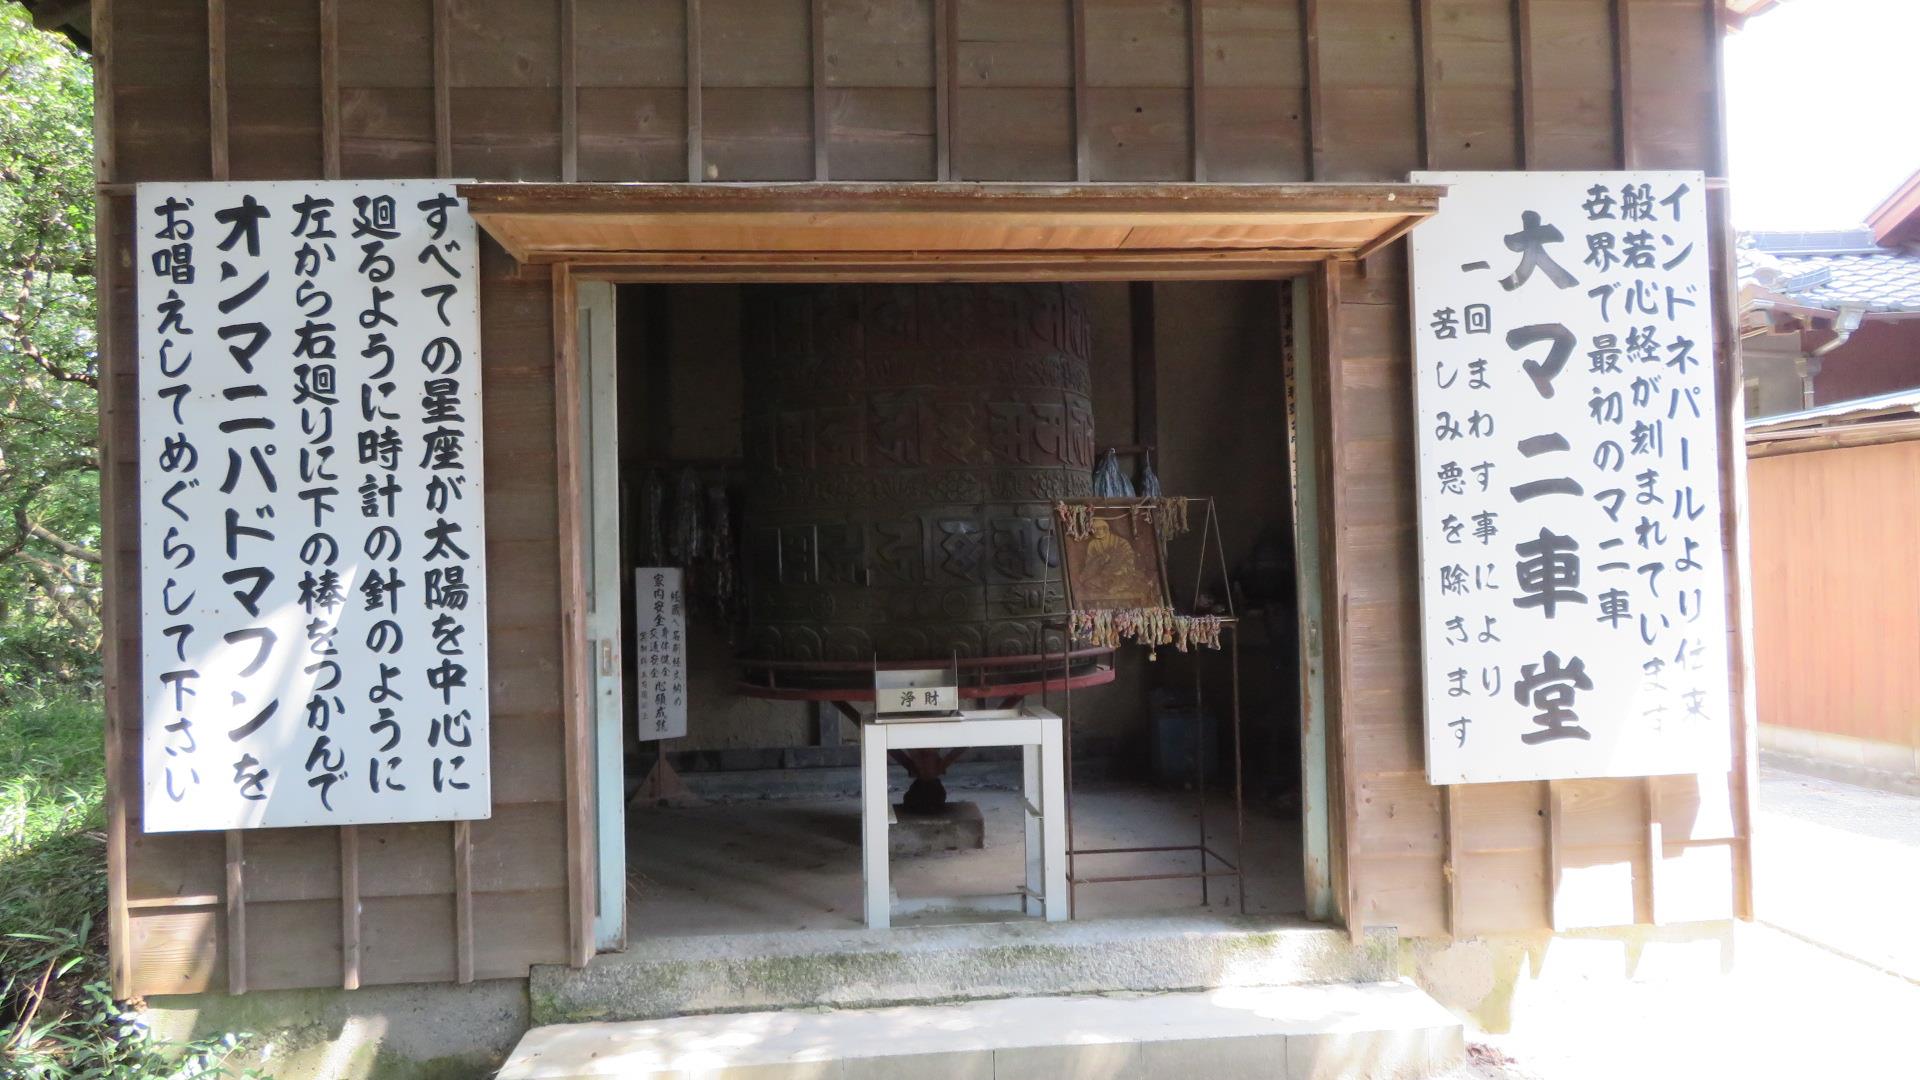 インドネパールより仕来
般若心経が刻まれています
世界で最初のマニ車
大マニ車堂
一回まわす事により
苦しみ悪を除きます
すべての星座が太陽を中心に
廻るように時計の針のように
左から右廻りに下の棒をつかんで
オンマニパドマフンを
お唱えしてめぐらして下さい
浄財
身体健全
家内安全
交通安全
心願成就